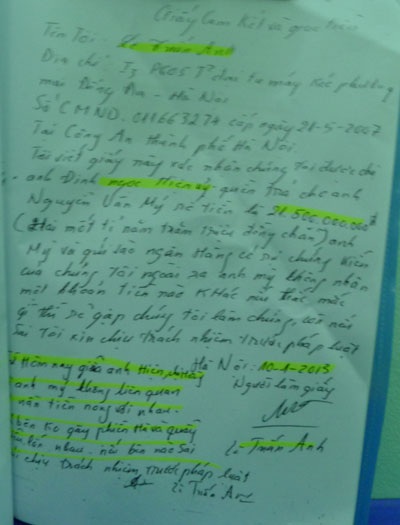 Giấy Cam Kết và giao tiền
Tên Tôi: Lê Tuấn Anh
Địa chỉ: P605
mai Đống Đa - Hà Nội
Số CMND. 011663274 cấp ngày 21-5-2007
Tại Công An thành phố Hà Nội
Tôi viết giấy này xác nhận chúng tôi được
anh Đinh ngọc Hiện trả cho anh
Nguyễn Văn Mỹ số tiền là 21.500.000.000đ
(Hai mốt tỉ năm trăm triệu đồng chẵn) anh
Mỹ và gửi vào ngân hàng có sự chứng kiến
của chúng tôi ngoài ra anh mỹ không nhận
một khoản tiền nào khác nếu thắc mắc
gì thì sẽ gặp chúng tôi làm chứng, còn nếu
Sai Tôi xin chịu trách nhiệm trước pháp luật
Hà Nội: 10-1-2013
Người làm giấy
Từ hôm nay giữa anh Hiện
anh mỹ không liên quan
tiền nong với nhau.
bên ko gây phiền Hà và quấy
lẫn nhau. nếu bên nào Sai
chịu trách nhiệm trước pháp luật
Lê Tuấn Anh
Lê Tuấn Anh